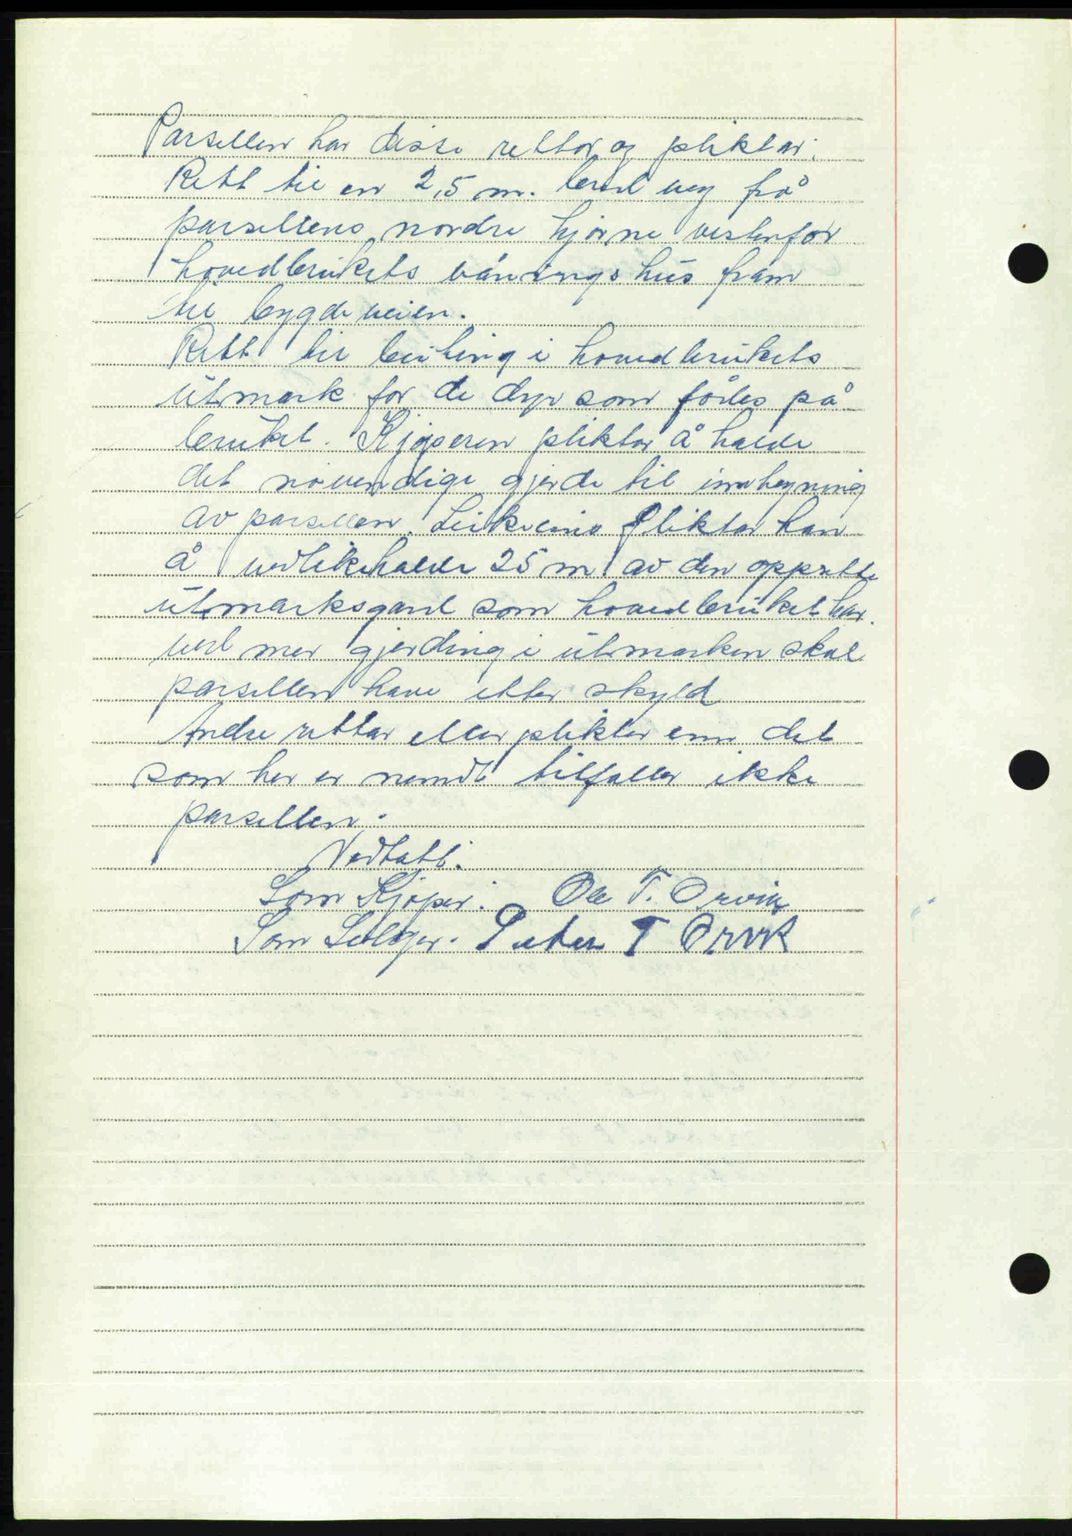 Parsellen har disse rettar og pliktar:
Rett til en 2,5 m. bred veg frå
parsellens nordre hjørne vestenfor
hovedbrukets våningshus fram
til bygdeveien.
Rett til beiting i hovedbrukets
utmark for de dyr som fødes på
bruket. Kjøperen pliktar å halde
det nøvendige gjerde til innhegning
av parsellen. Likeeins pliktar han
å vedlikehalde 25 m av den oppsatte
utmarksgard som hovedbruket har.
ved mer gjerding i utmarken skal
parsellen have etter skyld
Andre rettar eller plikter enn det
som her er nemdt tilfaller ikke
parsellen.
Vedtatt.
Som Kjøper. Ole T. Orvik
Som Selger. Peter T Orvik